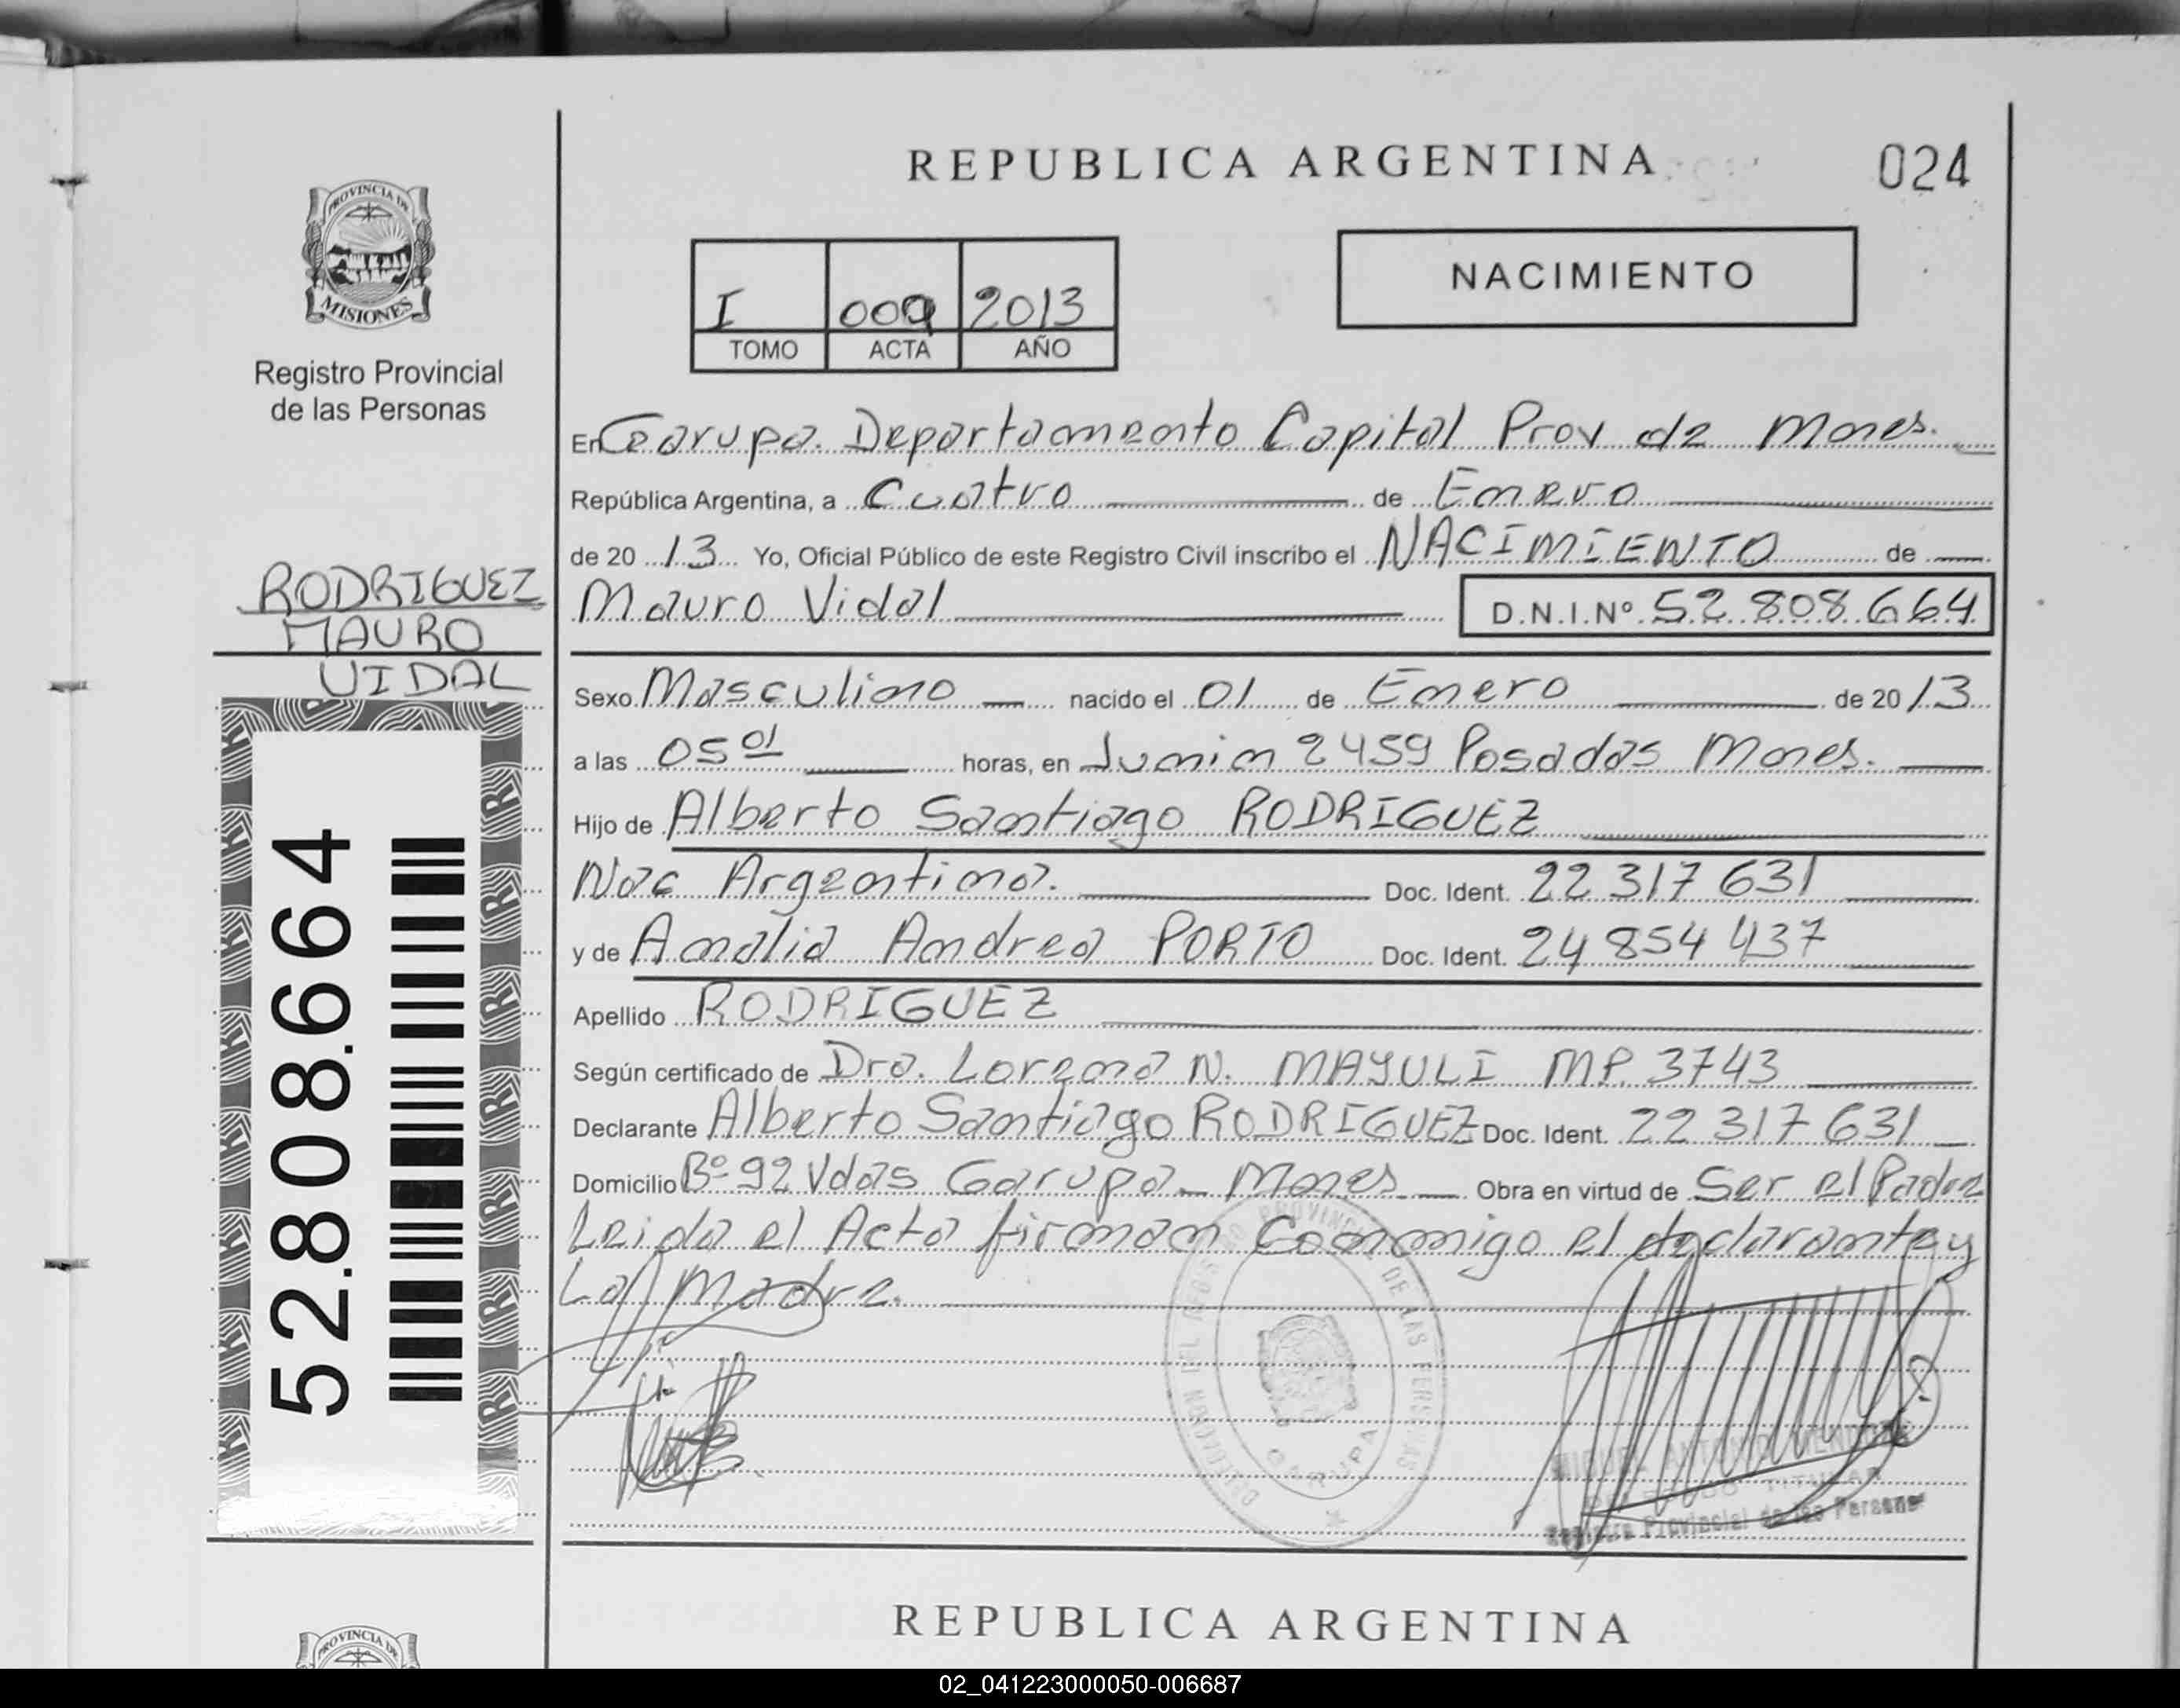 REPUBLICA ARGENTINA
024
PROVINCIA DE
MISIONES
Registro Provincial
de las Personas
I 009 2013
TOMO ACTA AÑO
NACIMIENTO
En Garupa. Departamento Capital Prov de Mnes.
República Argentina, a Cuatro de Enero
de 2013 Yo, Oficial Público de este Registro Civil inscribo el NACIMIENTO de
Mauro Vidal D.N.I.Nº 52.808.664
RODRIGUEZ
MAURO
VIDAL
Sexo Masculino nacido el 01 de Enero de 2013
a las 05 01 horas, en Junin 2459 Posadas Mnes.
Hijo de Alberto Santiago RODRIGUEZ
Nac Argentina. Doc. Ident. 22 317 631
y de Analia Andrea PORTO Doc. Ident. 24 854 437
Apellido RODRIGUEZ
Según certificado de Dra. Lorena N. MAYULI MP. 3743
Declarante Alberto Santiago RODRIGUEZ Doc. Ident. 22 317 631
Domicilio Bº 92 Vdas Garupa - Mnes Obra en virtud de Ser el Padre
Leida el Acta firman Conmigo el declarante y
La Madre.
52.808.664
GARUPA
MIGUEL ANTONIO
TITULAR
Registro Provincial de las Personas
REPUBLICA ARGENTINA
PROVINCIA DE
02_041223000050-006687